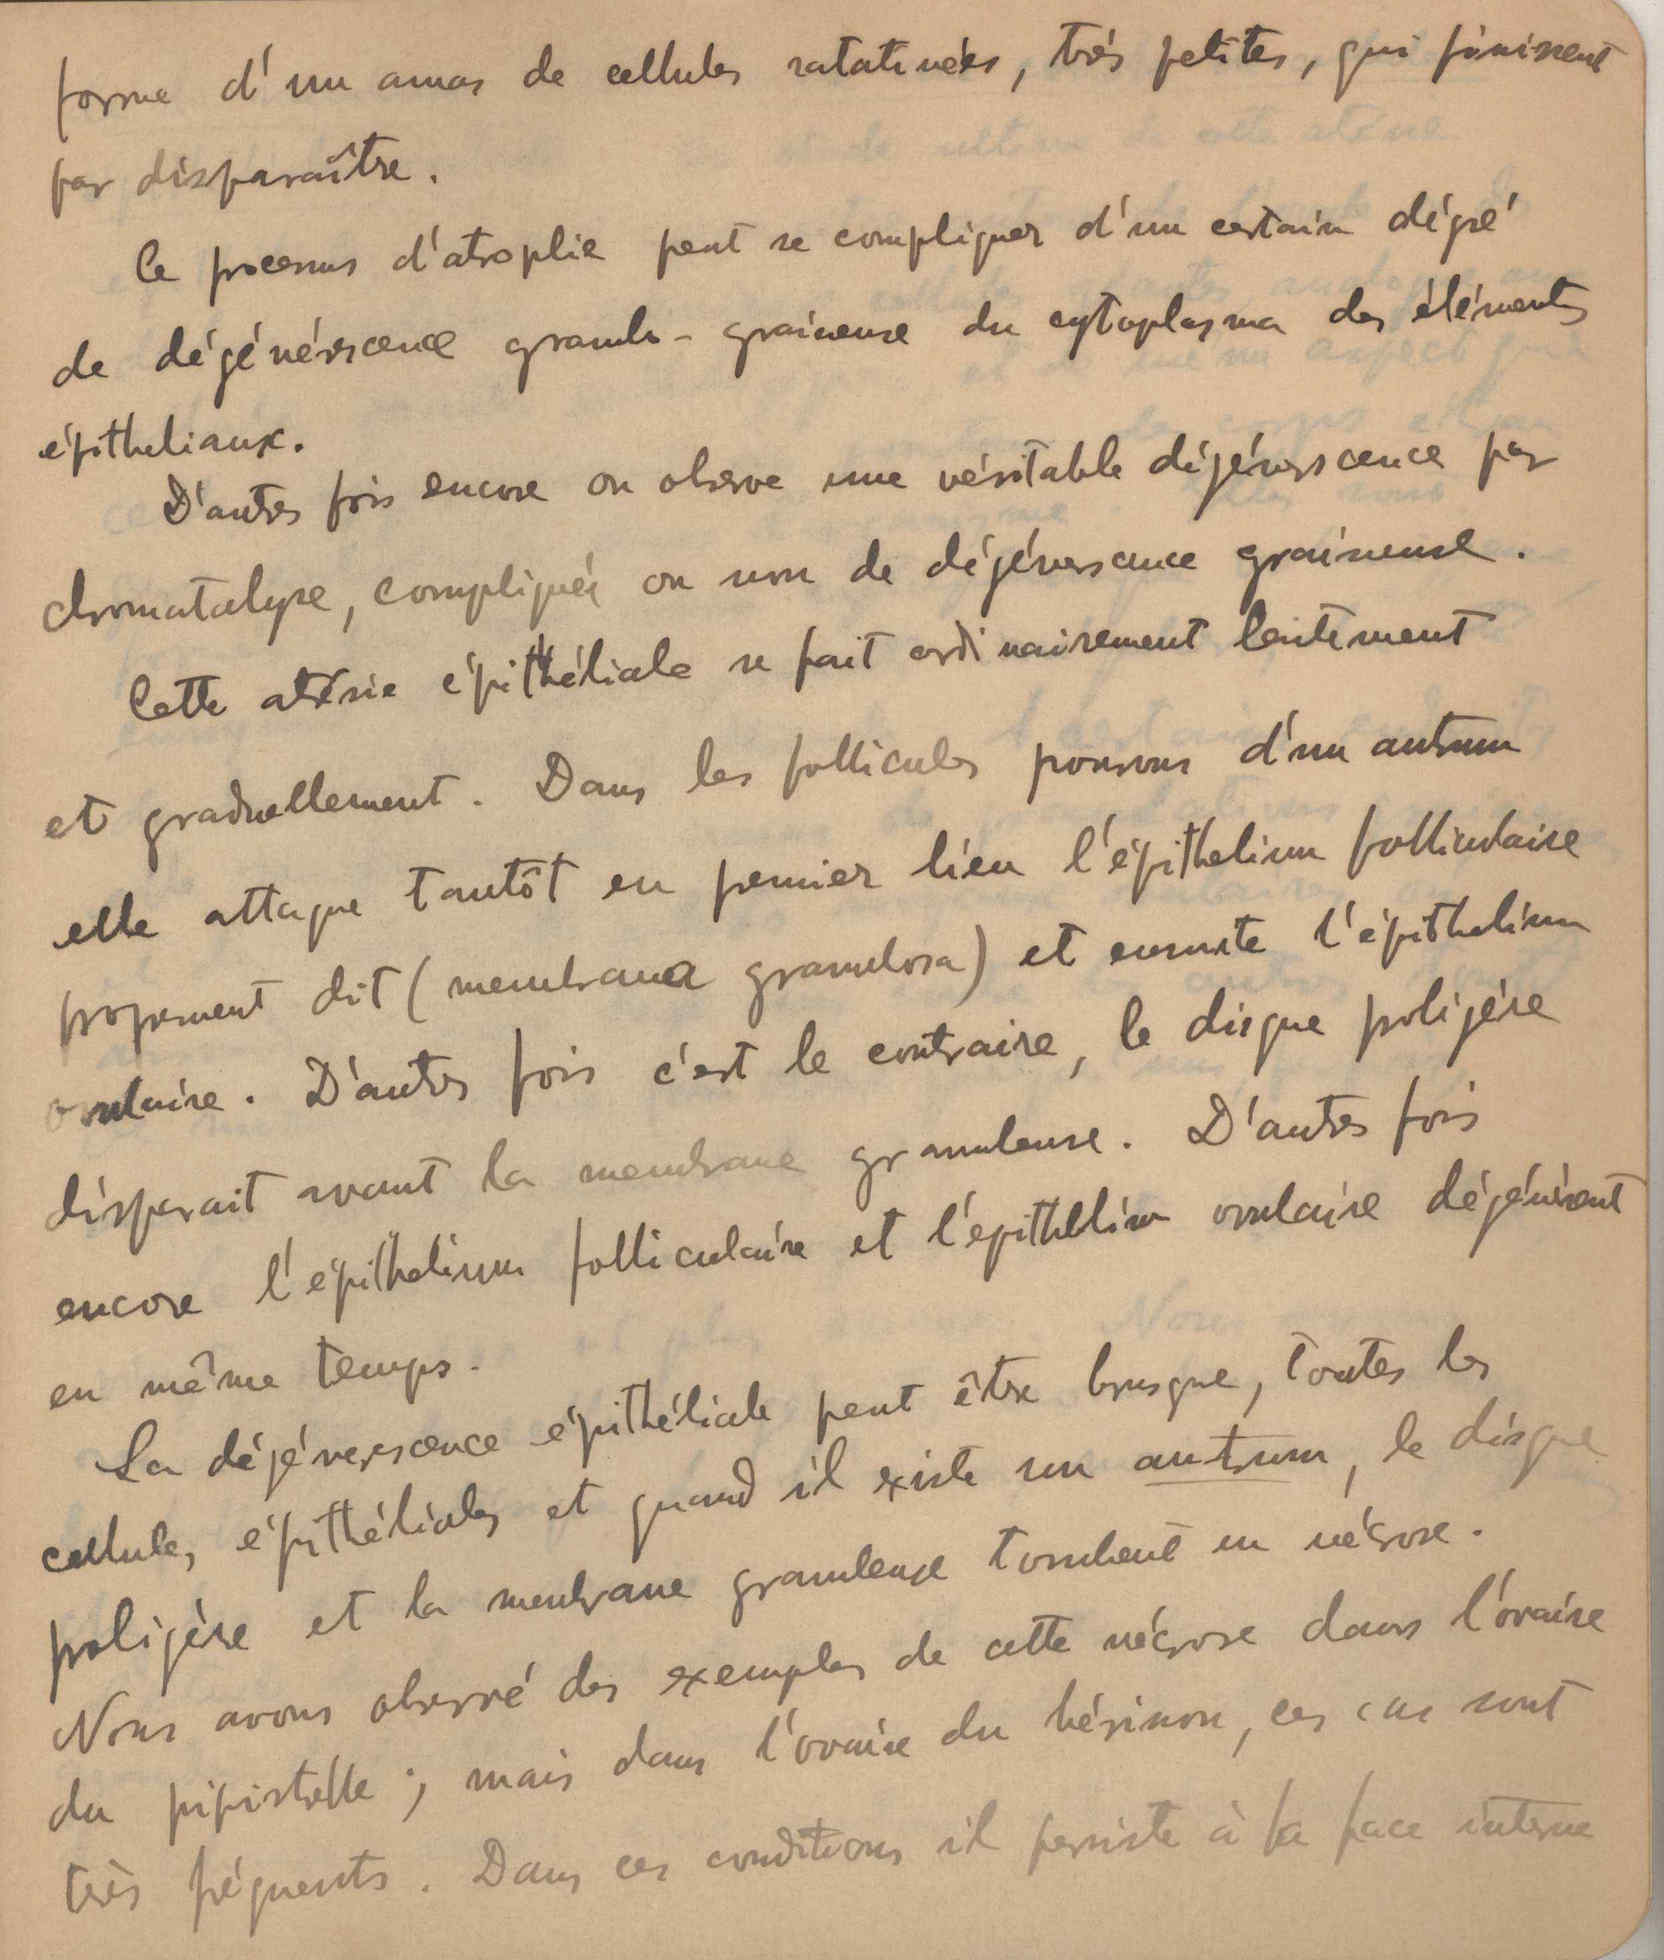 forme d'un amas de cellules ratatinées, très petites, qui finissent
par disparaître.
Ce processus d'atrophie peut se compliquer d'un certain dégré
de dégénérescence granulo-graisseuse du cytoplasma des éléments
épitheliaux.
D'autres fois encore on observe une véritable dégénérescence par
chromatolyse, compliquée ou non de dégénérescence graisseuse.
Cette atrésie épithéliale se fait ordinairement lentement
et graduellement. Dans les follicules pourvus d'un antrum
elle attaque tantôt en premier lieu l'épithelium folliculaire
proprement dit (membrana granulosa) et ensuite l'épithelium
ovulaire. D'autres fois c'est le contraire, le disque proligère
disparait avant la membrane granuleuse. D'autres fois
encore l'épithelium folliculaire et l'epithelium ovulaire dégénèrent
en même temps.
La dégénerescence épithéliale peut être brusque, toutes les
cellules épithéliales et quand il existe un antrum, le disque
proligère et la membrane granuleuse tombent en nécrose.
Nous avons observé des exemples de cette nécrose dans l'ovaire
du pipistrelle ; mais dans l'ovaire du hérisson, ces cas sont
très fréquents. Dans ces conditions il persiste à la face interne